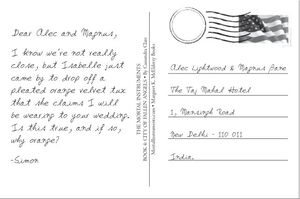 Dear Alec and Magnus,
I know we're not really
close, but Isabelle just
came by to drop off a
pleated orange velvet tux
that she claims I will
be wearing to your wedding.
Is this true, and if so,
why orange?
-Simon
THE MORTAL INSTRUMENTS
BOOK 4: CITY OF FALLEN ANGELS • By Cassandra Clare
MortalInstruments.com • Margaret K. McElderry Books
Alec Lightwood & Magnus Bane
The Taj Mahal Hotel
1, Mansingh Road
New Delhi - 110 011
India